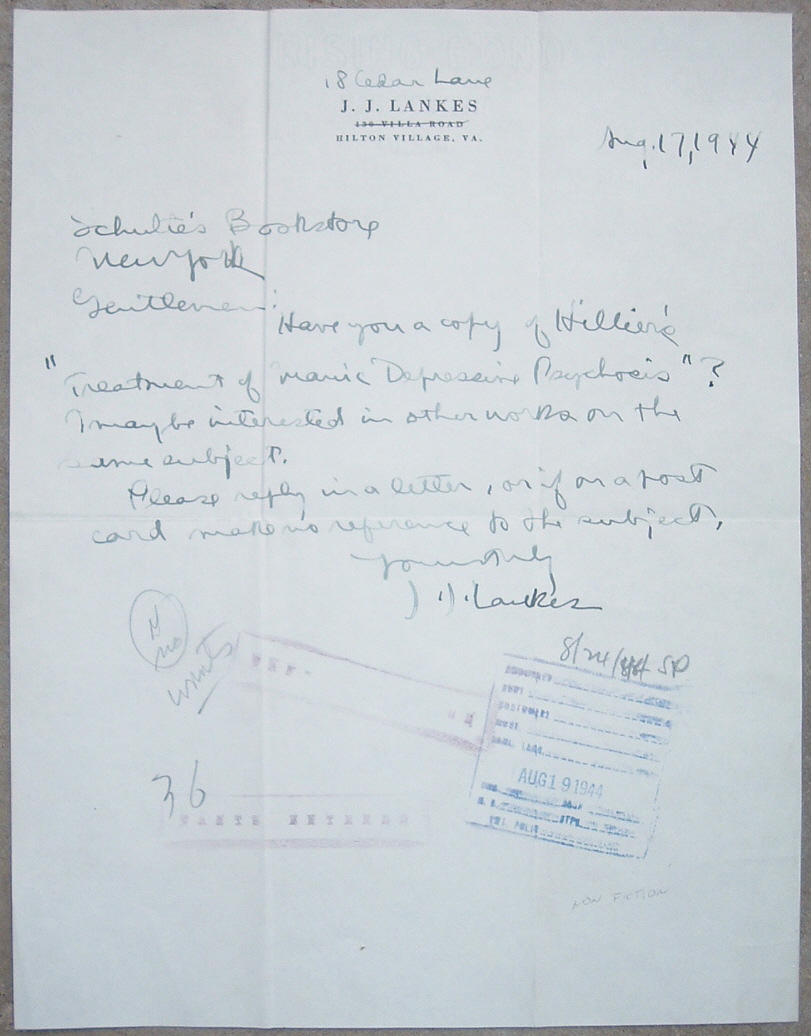 18 Cedar Lane
J. J. LANKES
130 VILLA ROAD
HILTON VILLAGE, VA.
Aug. 17, 1944
Schulte's Bookstore
New York
Gentlemen:
Have you a copy of Hillier's
"Treatment of Manic Depressive Psychosis"?
I may be interested in other works on the
same subject.
Please reply in a letter, or if on a post
card make no reference to the subject.
Yours truly
J. J. Lankes
8/24/44 SP
wants
AUG 19 1944
36
WANTS ENTERED
NON FICTION